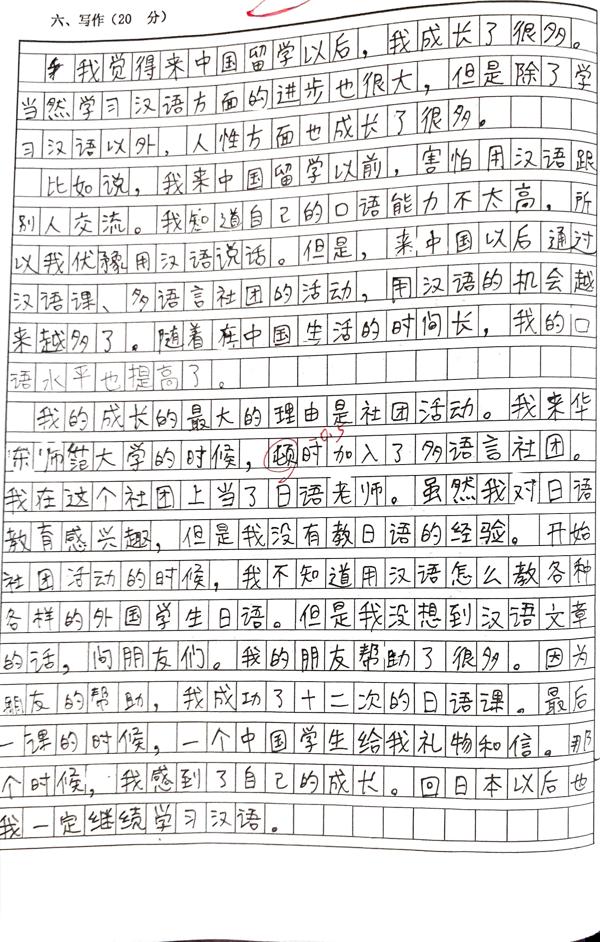 六、写作(20 分)
我觉得来中国留学以后，我成长了很多。
当然学习汉语方面的进步也很大，但是除了学
习汉语以外，人性方面也成长了很多。
比如说，我来中国留学以前，害怕用汉语跟
别人交流。我知道自己的口语能力不太高，所
以我伏豫用汉语说话。但是，来中国以后通过
汉语课、多语言社团的活动，用汉语的机会越
来越多了。随着在中国生活的时间长，我的口
语水平也提高了。
我的成长的最大的理由是社团活动。我来华
东师范大学的时候，顿时加入了多语言社团。
0.5
我在这个社团上当了日语老师。虽然我对日语
教育感兴趣，但是我没有教日语的经验。开始
社团活动的时候，我不知道用汉语怎么教各种
各样的外国学生日语。但是我没想到汉语文章
的话，问朋友们。我的朋友帮助了很多。因为
朋友的帮助，我成功了十二次的日语课。最后
一课的时候，一个中国学生给我礼物和信。那
个时候，我感到了自己的成长。回日本以后也
我一定继续学习汉语。